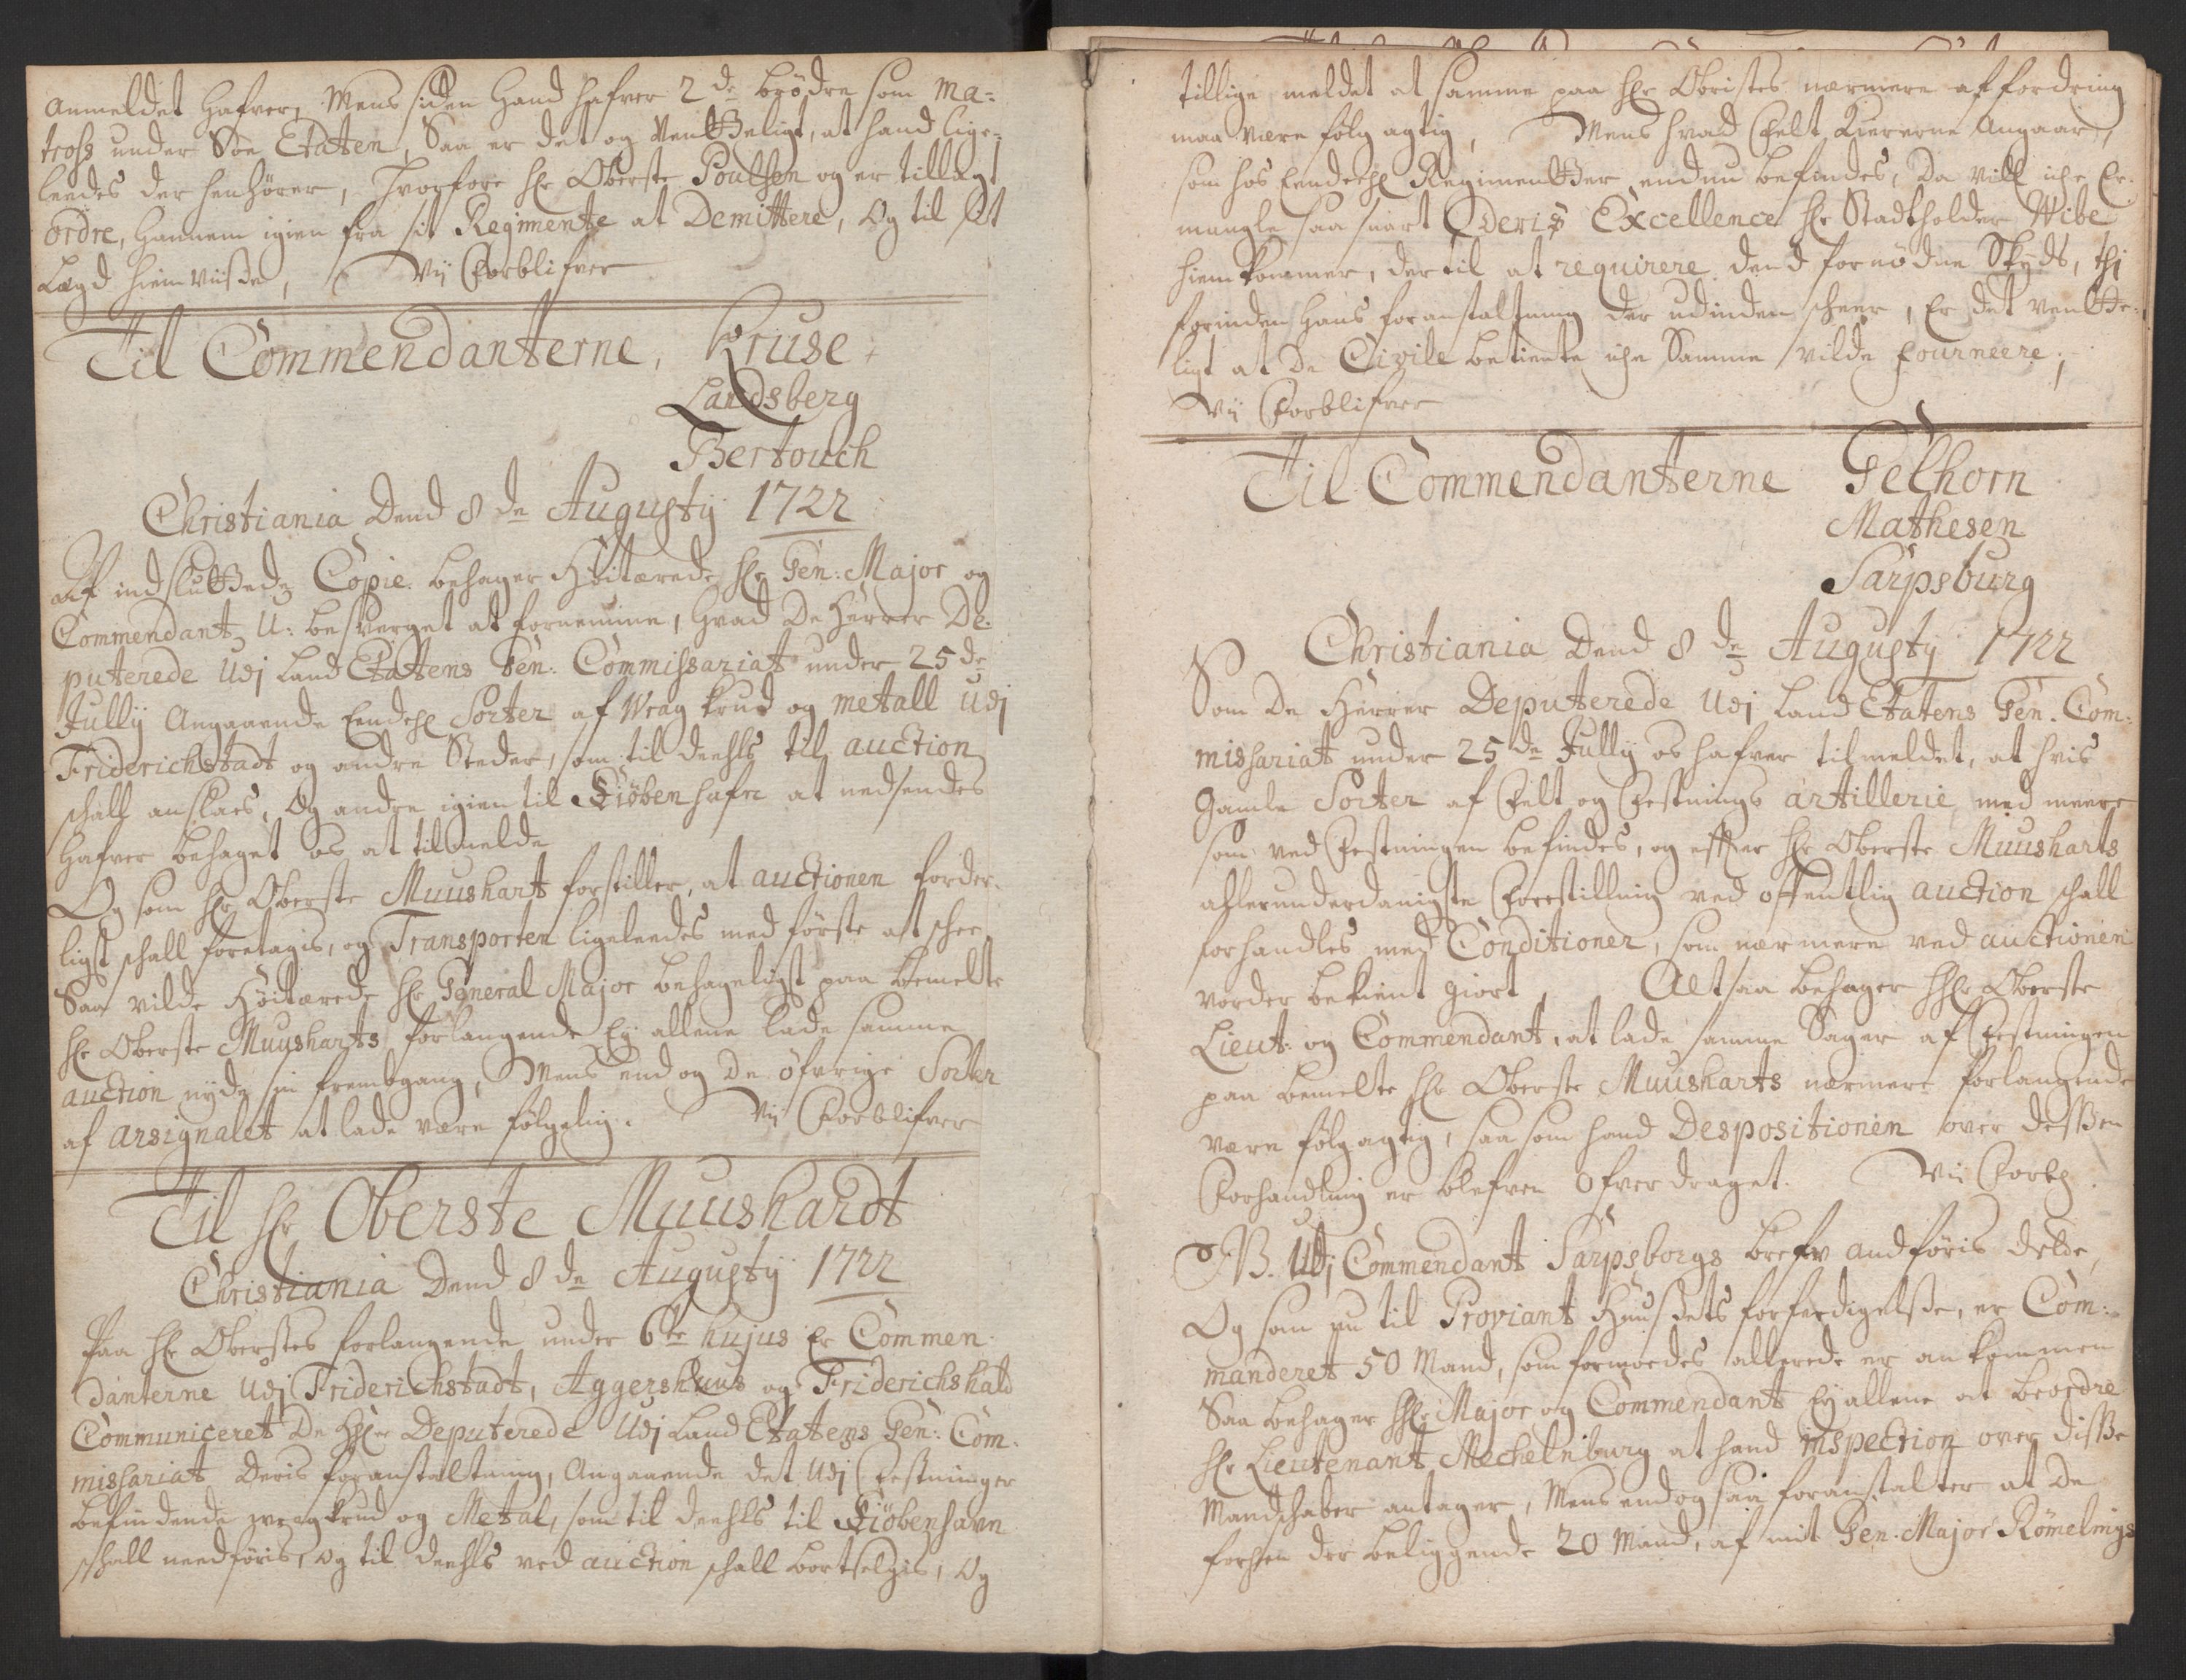 Anmeldet hafver, Mens siden hand hafver 2de brödre som Ma-
tross under Söe Etatten, Saa er det og ventteligt, at hand lige-
leedes der henhörer, hvorfore hr Oberste Poulsen og er tillagt
Ordre, hannem igien fra sit Regimente at Demittere, og til sit
Lægd hiemviisse, Vij Forblifver
Til Commendanterne, Kruse
Landsberg
Bertouch
Christiania Dend 8de Augustij 1722
Af indsluttede Copie behager Höitærede hr Gen: Major og
Commendant U: besverget at fornemme, hvad De Herrer De-
puterede Udj Land Etattens Gen: Commissariat under 25de
Jullij Angaaende Eendehl Sorter af Vrag krud og metall Udj
Friderichstadt og andre Steder, som til deehls til auction
schall anslaes, Og andre igien til Kiöbenhafn at nedsendes
hafver behaget os at tilmelde
Og som hr Oberste Muushart forstiller, at auctionen forder-
ligst schall foretagis, og Transporten ligeleedes med förste at schee,
Saa vilde Höitærede hr General Major behageligst paa bemelte
hr Oberste Muusharts forlangende Ej allene lade samme
auction nyde sin frembgang, Mens endog De öfvrige Sorter
af Arsignalet at lade være fölgelig. Vij Forblifver
Til hr Oberste Muushardt
Christiania Dend 8de Augustij 1722
Paa hr Oberstes forlangende under 6te hujus Er Commen-
danterne Udj Friderichstadt, Aggershuus og Friderichshald
Communiceret De Hhrr Deputerede Udj Land Etatens Gen: Com-
missariat Deris foranstaltning, Angaaende det Udj Festninger
befindende vragkrud og Metal, som til deehls til Kiöbenhavn
schall needföris, og til deehls ved auction schall bortselgis, Og
tillige meldet at samme paa hr Obristes nærmere affordring
maa være fölgagtig, Mens hvad Felt Kiererne Angaar,
som hos Eendeehl Regimentter endnu befindes, Da vill iche Er-
mangle saa snart Deris Excellence hr Stadtholder Wibe
hiemkommer, dertil at requirere dend fornödne Skyds, thj
forinden hans foranstaltning der udinden scheer, Er det ventte-
ligt at De Civile betiente iche Samme vilde fourneere,
Vij Forblifver
Til Commendanterne Gelhorn
Mathesen
Sarpsburg
Christiania Dend 8de Augustij 1722
Som De Herrer Deputerede Udj Land Etatens Gen. Com-
missariat under 25de Jullij os hafver tilmeldet, at hvis
Gamle Sorter af Felt og Festnings artillerie med meere
som ved Festningen befindes, og efter hr Oberste Muusharts
allerunderdanigste Forestilling ved offentlig auction schall
forhandles med Conditioner, som nærmere ved auctionen
vorder bekient giort, Altsaa behager Hhr Oberste
Lieut: og Commendant, at lade samme Sager af Festningen
paa bemelte hr Oberste Muusharts nærmere forlangende
være fölgagtig, saasom hand Despositionen over dessen
Forhandling er blefven Ofverdraget. Vij Forbl.
NB. Udj Commendant Sarpsborgs brefv andföris dette,
Og som nu til Proviant Huusets forferdigelsse, er Com-
manderet 50 Mand, som formoedes allerede er ankommen
Saa behager Hhr Major og Commendant Ej allene at beordre
hr Lieutenant Mechelnburg at hand inspection over disse
Mandschaber antager, Mens endog saa foranstalter at De
forhen der beliggende 20 Mand, af mit Gen: Major Römelings